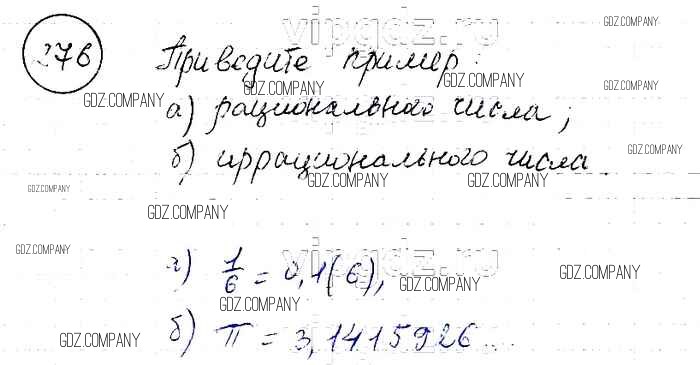 276 Приведите пример:
а) рационального числа;
б) иррационального числа.
а) 1/6 = 0,1(6),
б) π = 3,1415926...
vipgdz.ru
GDZ.COMPANY
GDZ.COMPANY
GDZ.COMPANY
GDZ.COMPANY
GDZ.COMPANY
GDZ.COMPANY
GDZ.COMPANY
GDZ.COMPANY
GDZ.COMPANY
GDZ.COMPANY
GDZ.COMPANY
GDZ.COMPANY
vipgdz.ru
GDZ.COMPANY
GDZ.COMPANY
GDZ.COMPANY
GDZ.COMPANY
GDZ.COMPANY